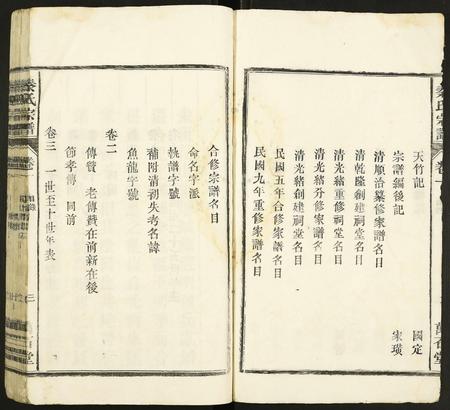 秦氏宗譜
卷一
萬石堂
天竹記 國定
宗譜編後記 家璜
清順治纂修家譜名目
清乾隆創建祠堂名目
清光緒重修祠堂名目
清光緒分修家譜名目
清光緒創建祠堂名目
民國五年合修家譜名目
民國九年重修家譜名目
合修宗譜名目
命名字派
祧譜字號
補附清初失考名諱
魚龍字號
卷二
傳贊 老傳贊在前新在後
節孝傳 同前
卷三 一世至十世年表
秦氏宗譜
卷一
三